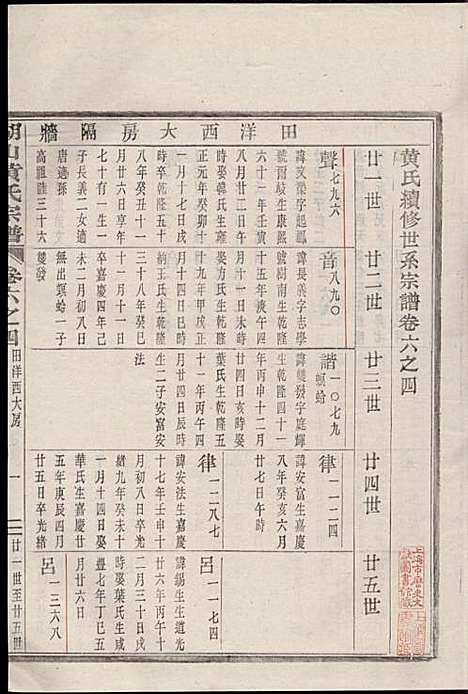 黄氏續修世系宗譜卷六之四
廿一世 廿二世 廿三世 廿四世 廿五世
田洋西大房隔牆
聲七九六
諱學文字起鳳
號爾岐生康熙
六十一年壬寅
時娶韓氏生雍
正元年癸卯十
一月十七日戌
時卒乾隆五十
八年癸丑十一
月廿六日享年
七十有一生一
子長義二女適
唐適孫
三十六
音八九〇
諱長義字志學
號朝南生乾隆
十五年庚午四
娶葉氏生乾隆
十九年甲戌正
月十四日巳時
納王氏生乾隆
三十八年癸巳
十月十一日
卒嘉慶四年己
未二月初八日
無出螟蛉一子
雙發
諧一〇七九
螟蛉
諱雙發字庭輝
生乾隆四十一
年丙申十二月
廿四日亥時娶
葉氏生乾隆五
十一年丙午四
月廿四日辰時
生二子安富安
法
律一一二四
諱安富生嘉慶
八年癸亥六月
廿七日午時
律一二八七
諱安法生嘉慶
月初八日卒光
緒九年癸未十
一月十四日
華氏生嘉慶廿
五年庚辰四月
廿五日卒光緒
呂一一七四
諱錫生生道光
二月三十日戌
時娶葉氏生咸
豐七年丁巳三
月廿六日
呂一三六八
山黃氏宗譜
卷六之四
田洋西大房
一
廿一世至廿五世